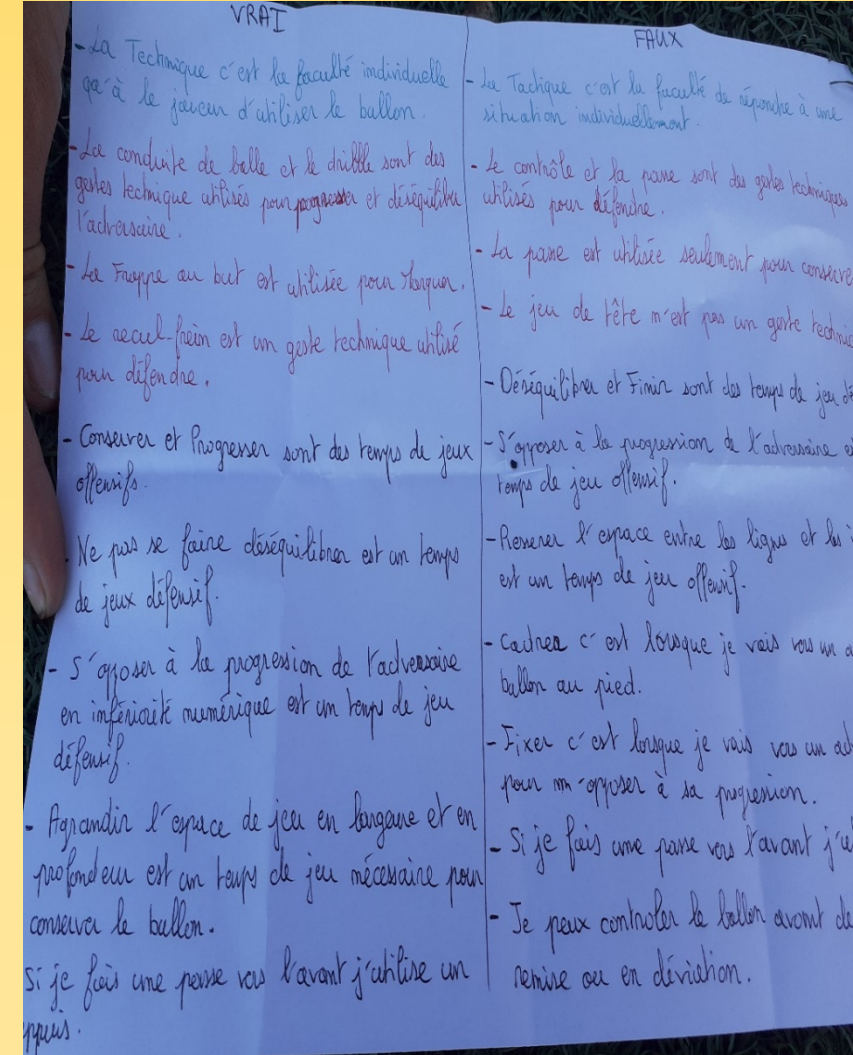 VRAI
- La Technique c'est la faculté individuelle
qu'à le joueur d'utiliser le ballon.
- La conduite de balle et le dribble sont des
gestes technique utilisés pour progresser et déséquilibrer
l'adversaire.
- La Frappe au but est utilisée pour Marquer.
- Le recul-frein est un geste technique utilisé
pour défendre.
- Conserver et Progresser sont des temps de jeux
offensifs.
- Ne pas se faire déséquilibrer est un temps
de jeux défensif.
- S'opposer à la progression de l'adversaire
en infériorité numérique est un temps de jeu
défensif.
- Agrandir l'espace de jeu en largeure et en
profondeur est un temps de jeu nécessaire pour
conserver le ballon.
Si je fais une passe vers l'avant j'utilise un
ppuis.
FAUX
- La Tactique c'est la faculté de répondre à une
situation individuellement.
- Le contrôle et la passe sont des gestes techniques
utilisés pour défendre.
- La passe est utilisée seulement pour conserve
- Le jeu de tête n'est pas un geste technic
- Déséquilibrer et Finir sont des temps de jeu dé
- S'opposer à la progression de l'adversaire e
temps de jeu offensif.
- Resserer l'espace entre les lignes et les i
est un temps de jeu offensif.
- Cadrer c'est lorsque je vais vers un a
ballon au pied.
- Fixer c'est lorsque je vais vers un ad
pour m'opposer à sa progression.
- Si je fais une passe vers l'avant j'u
- Je peux controler le ballon avant de
remise ou en déviation.